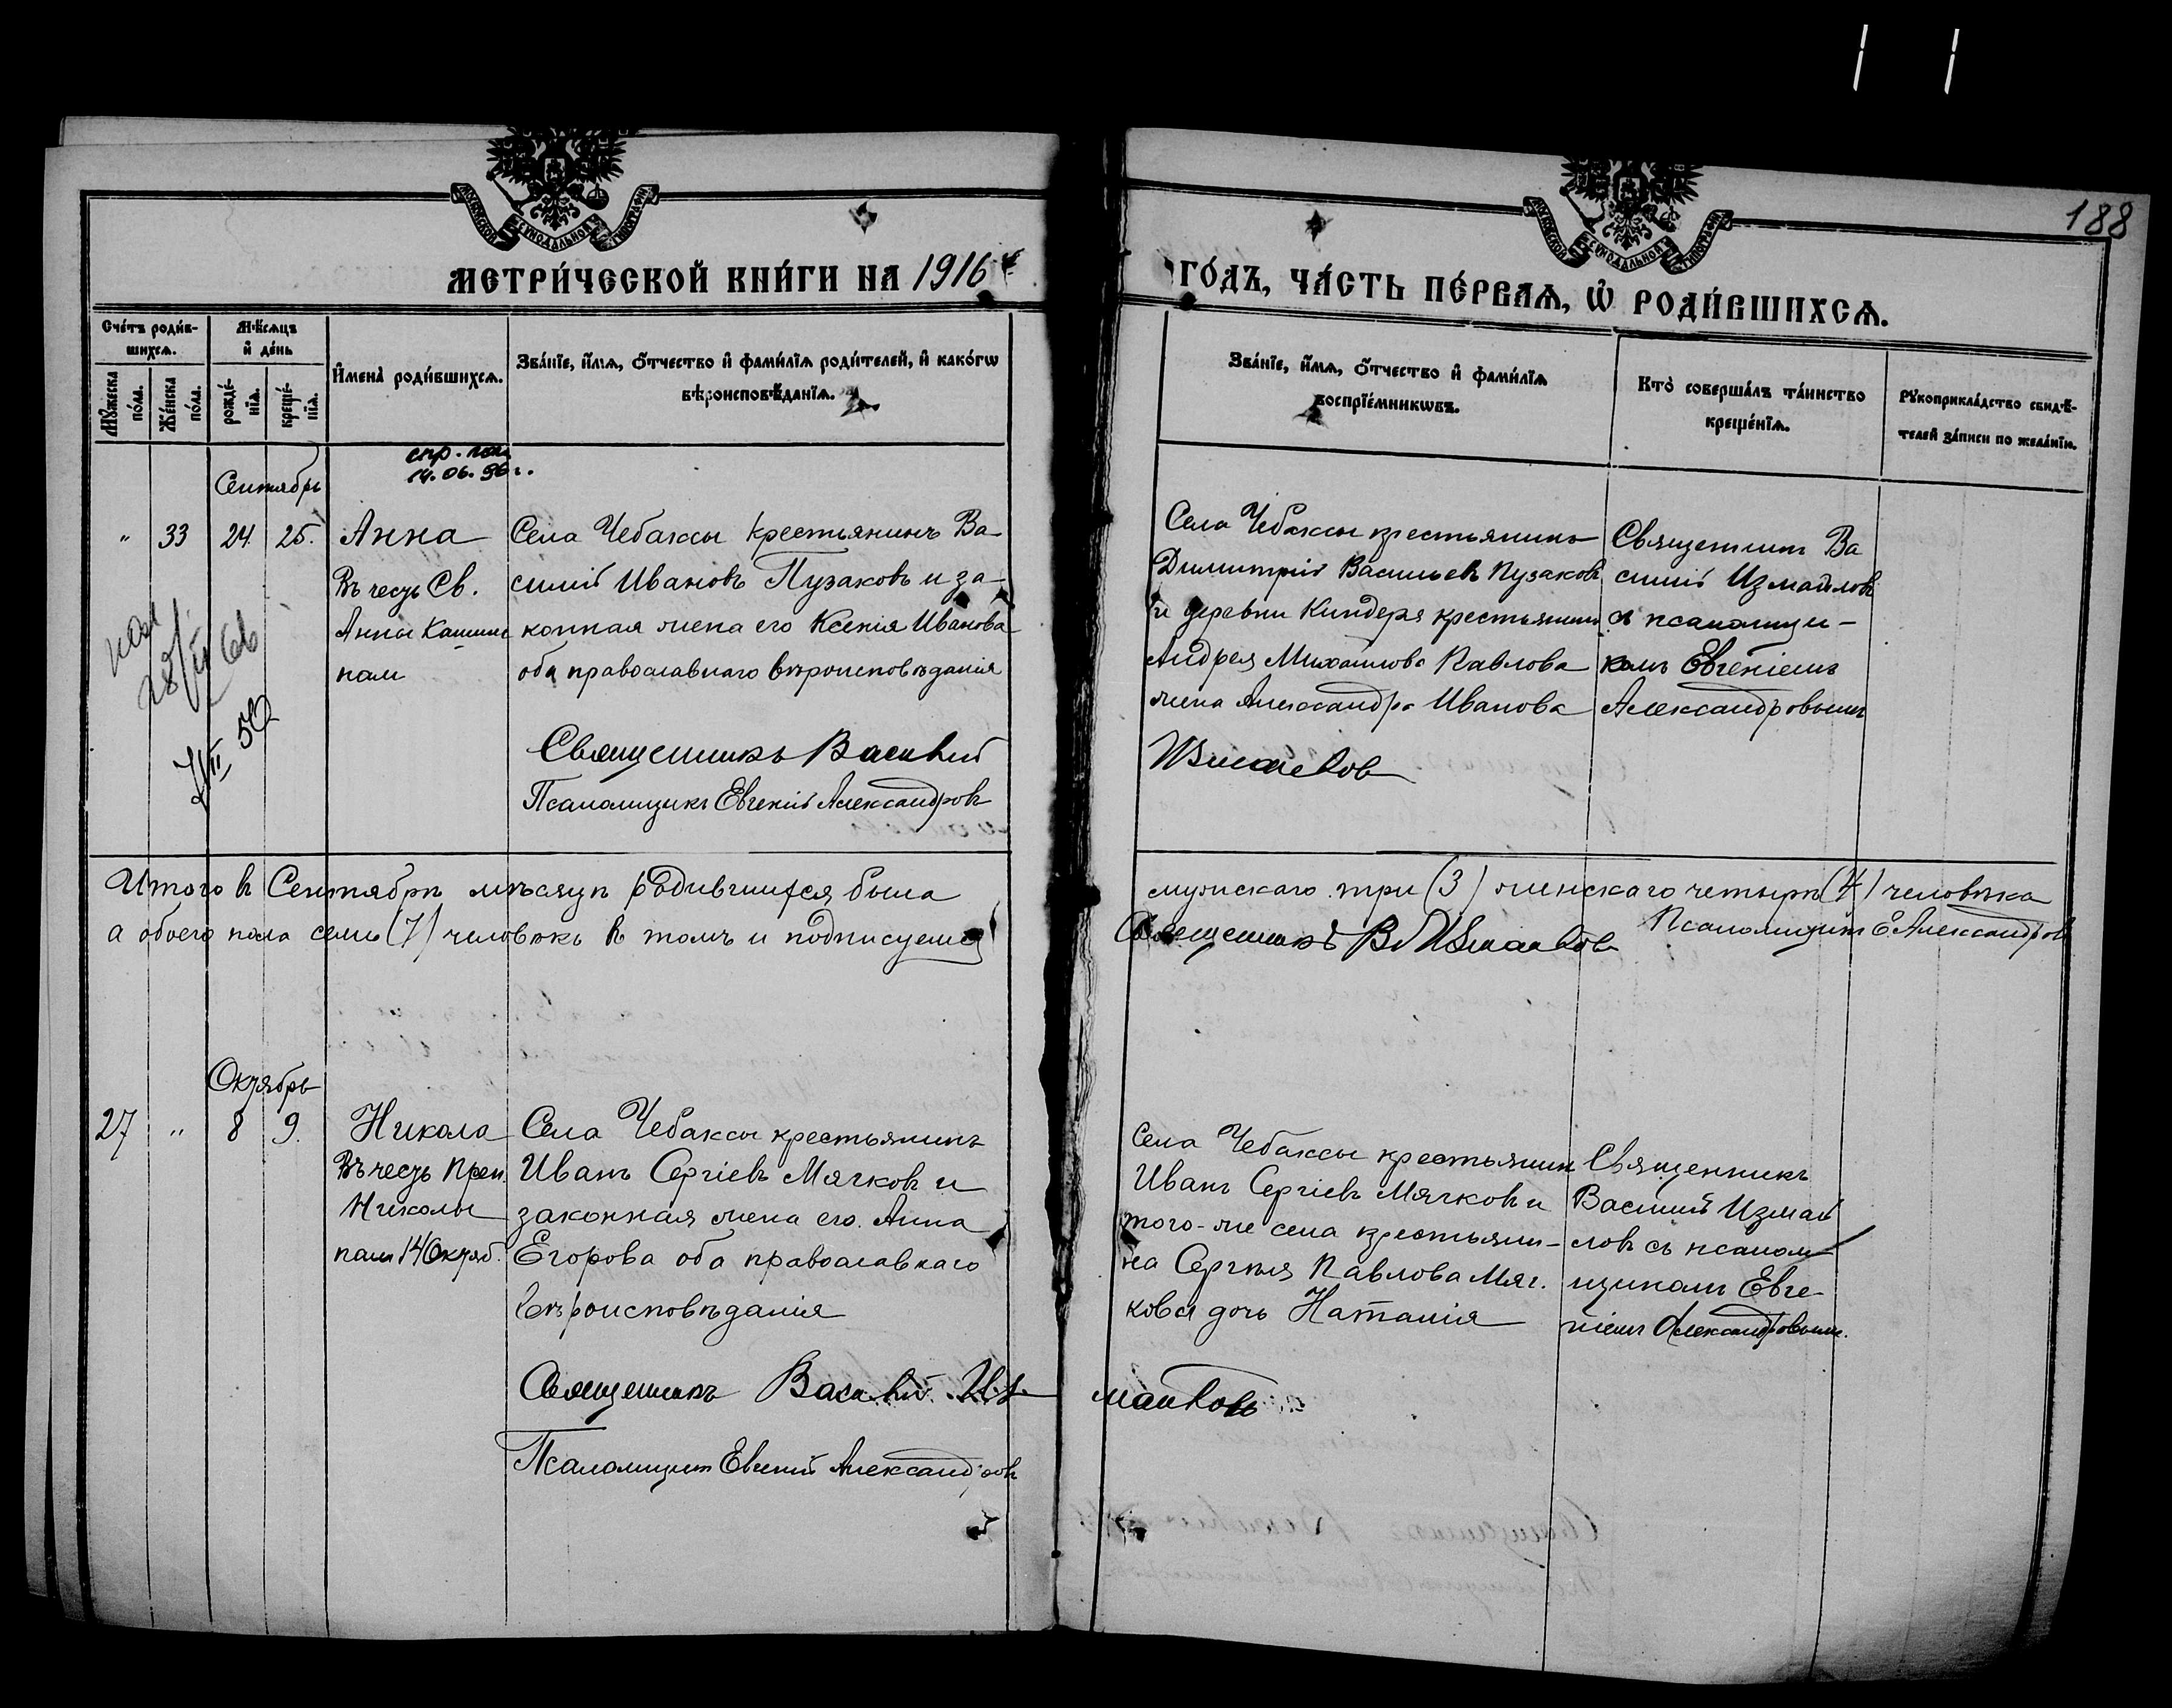 188
МОСКОВСКОЙ СѴНОДАЛЬНОЙ ТИПОГРАФІИ
МОСКОВСКОЙ СѴНОДАЛЬНОЙ ТИПОГРАФІИ
МЕТРИ́ЧЕСКОЙ КНИ́ГИ НА 1916
ГО́ДЪ, ЧА́СТЬ ПЕ́РВАѦ, Ѡ҆ РОДИ́ВШИХСѦ.
Сче́тъ роди́в-
шихсѧ.
Мѣ́сѧцъ
и҆ де́нь
Мꙋ́жеска по́ла.
Же́нска по́ла.
рожде́-нїѧ.
креще́-нїѧ.
И҆мена̀ роди́вшихсѧ.
Зва́нїе, и҆́мѧ, ѻ҆́тчество и҆ фами́лїѧ роди́телей, и҆ како́гѡ
вѣроисповѣ́данїѧ.
Зва́нїе, и҆́мѧ, ѻ҆́тчество и҆ фами́лїѧ
воспрїе́мникѡвъ.
Кто̀ соверша́лъ та́инство
креще́нїѧ.
Рꙋкоприкла́дство свидѣ́-
телей за́писи по жела́нїю.
14.06.56 г.
Сентябрь
" 33 24 25.
Анна
Въ честь Св.
Анны Кашин
нам
Села Чебаксы крестьянинъ Ва-
силій Ивановъ Пузаковъ и за-
конная жена его Ксенія Иванова
оба православнаго вѣроисповѣданія
Священникъ Василій
Псаломщикъ Евгеній Александровъ
Села Чебаксы крестьянинъ
Димитрій Васильевъ Пузаковъ
и деревни Киндеря крестьянин
Андрея Михаилова Павлова
жена Александра Иванова
Измайлов
Священникъ Ва
силій Измайловъ
съ псаломщи-
комъ Евгеніемъ
Александровымъ
Итого в Сентябрѣ мѣсяцѣ родившихся было
мужскаго три (3) женскаго четыре (4) человѣка
а обоего пола семь (7) человѣкъ в томъ и подписуемся
Священникъ В. Измайлов
Псаломщикъ Е. Александров
Октябрь
27 " 8 9.
Никола
Въ честь Преп.
Николы
пам 14 Октяб.
Села Чебаксы крестьянинъ
Иванъ Сергіевъ Мячковъ и
законная жена его Анна
Егорова оба православнаго
вѣроисповѣданія
Священникъ Василій Из-
майловъ
Псаломщикъ Евгеній Александровъ
Села Чебаксы крестьянин
Иванъ Сергіевъ Мячковъ и
того-же села крестьяни-
на Сергѣя Павлова Мяч-
кова дочь Наталія
Священникъ
Василій Измай
ловъ съ псалом-
щикомъ Евге-
ніемъ Александровымъ.